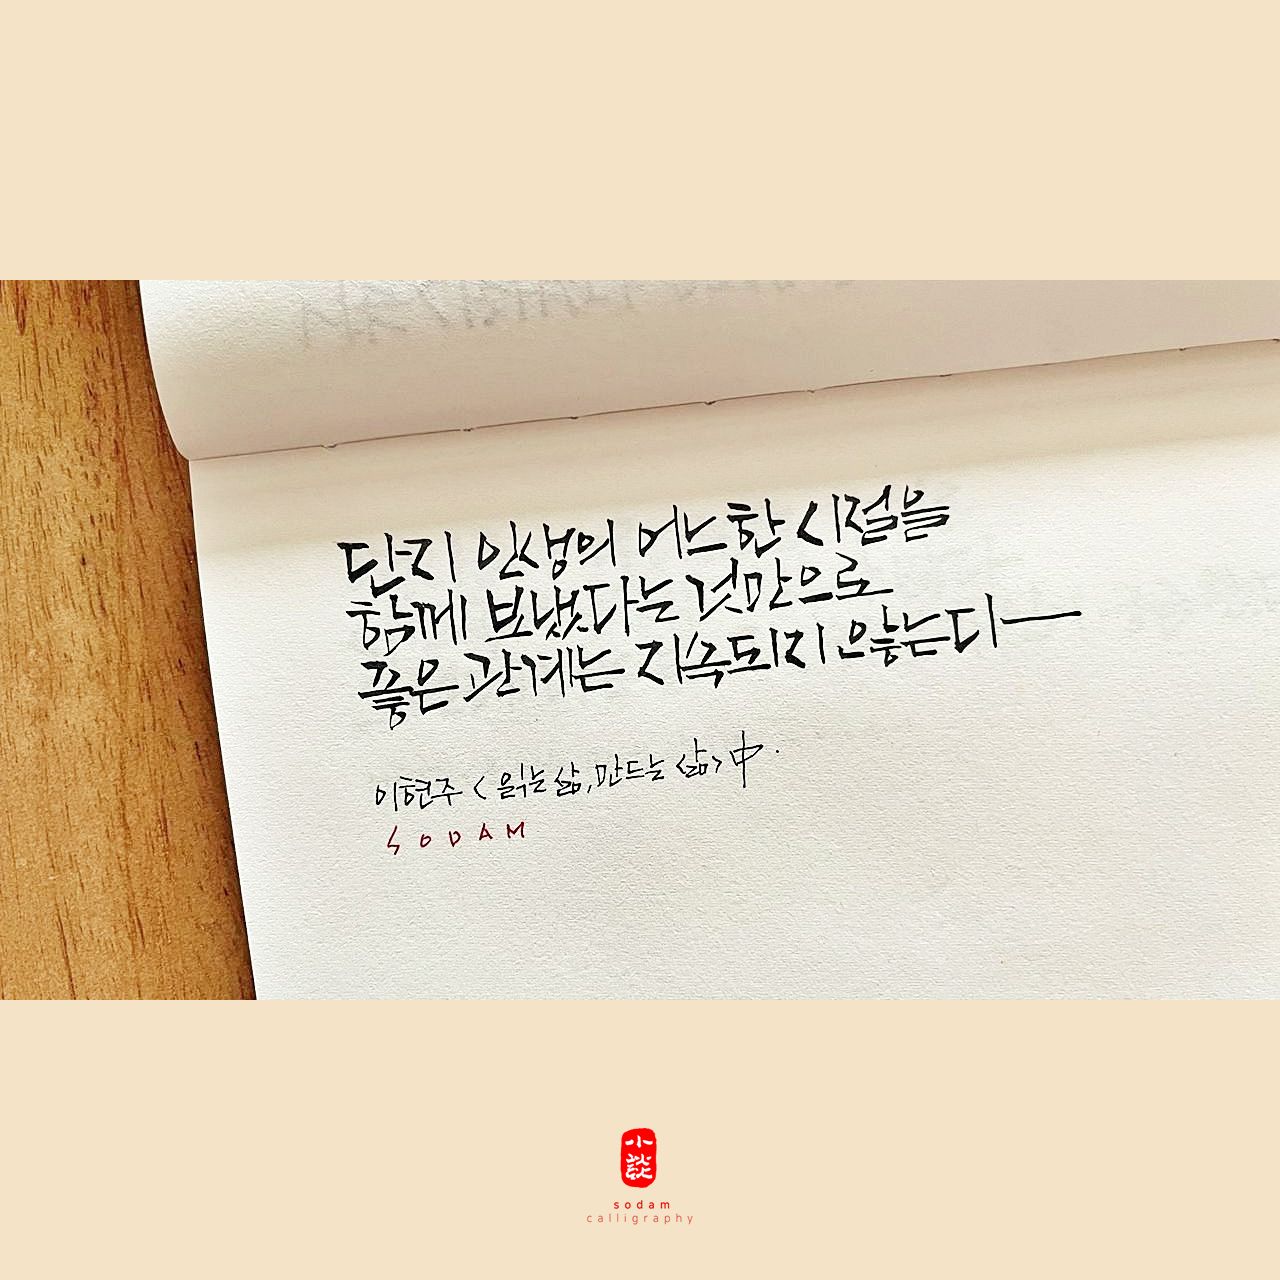 단지 인생의 어느 한 시절을
함께 보냈다는 것만으로
좋은 관계는 지속되지 않는다
이현주 < 읽는 삶, 만드는 삶> 中.
SODAM
小談
sodam
calligraphy